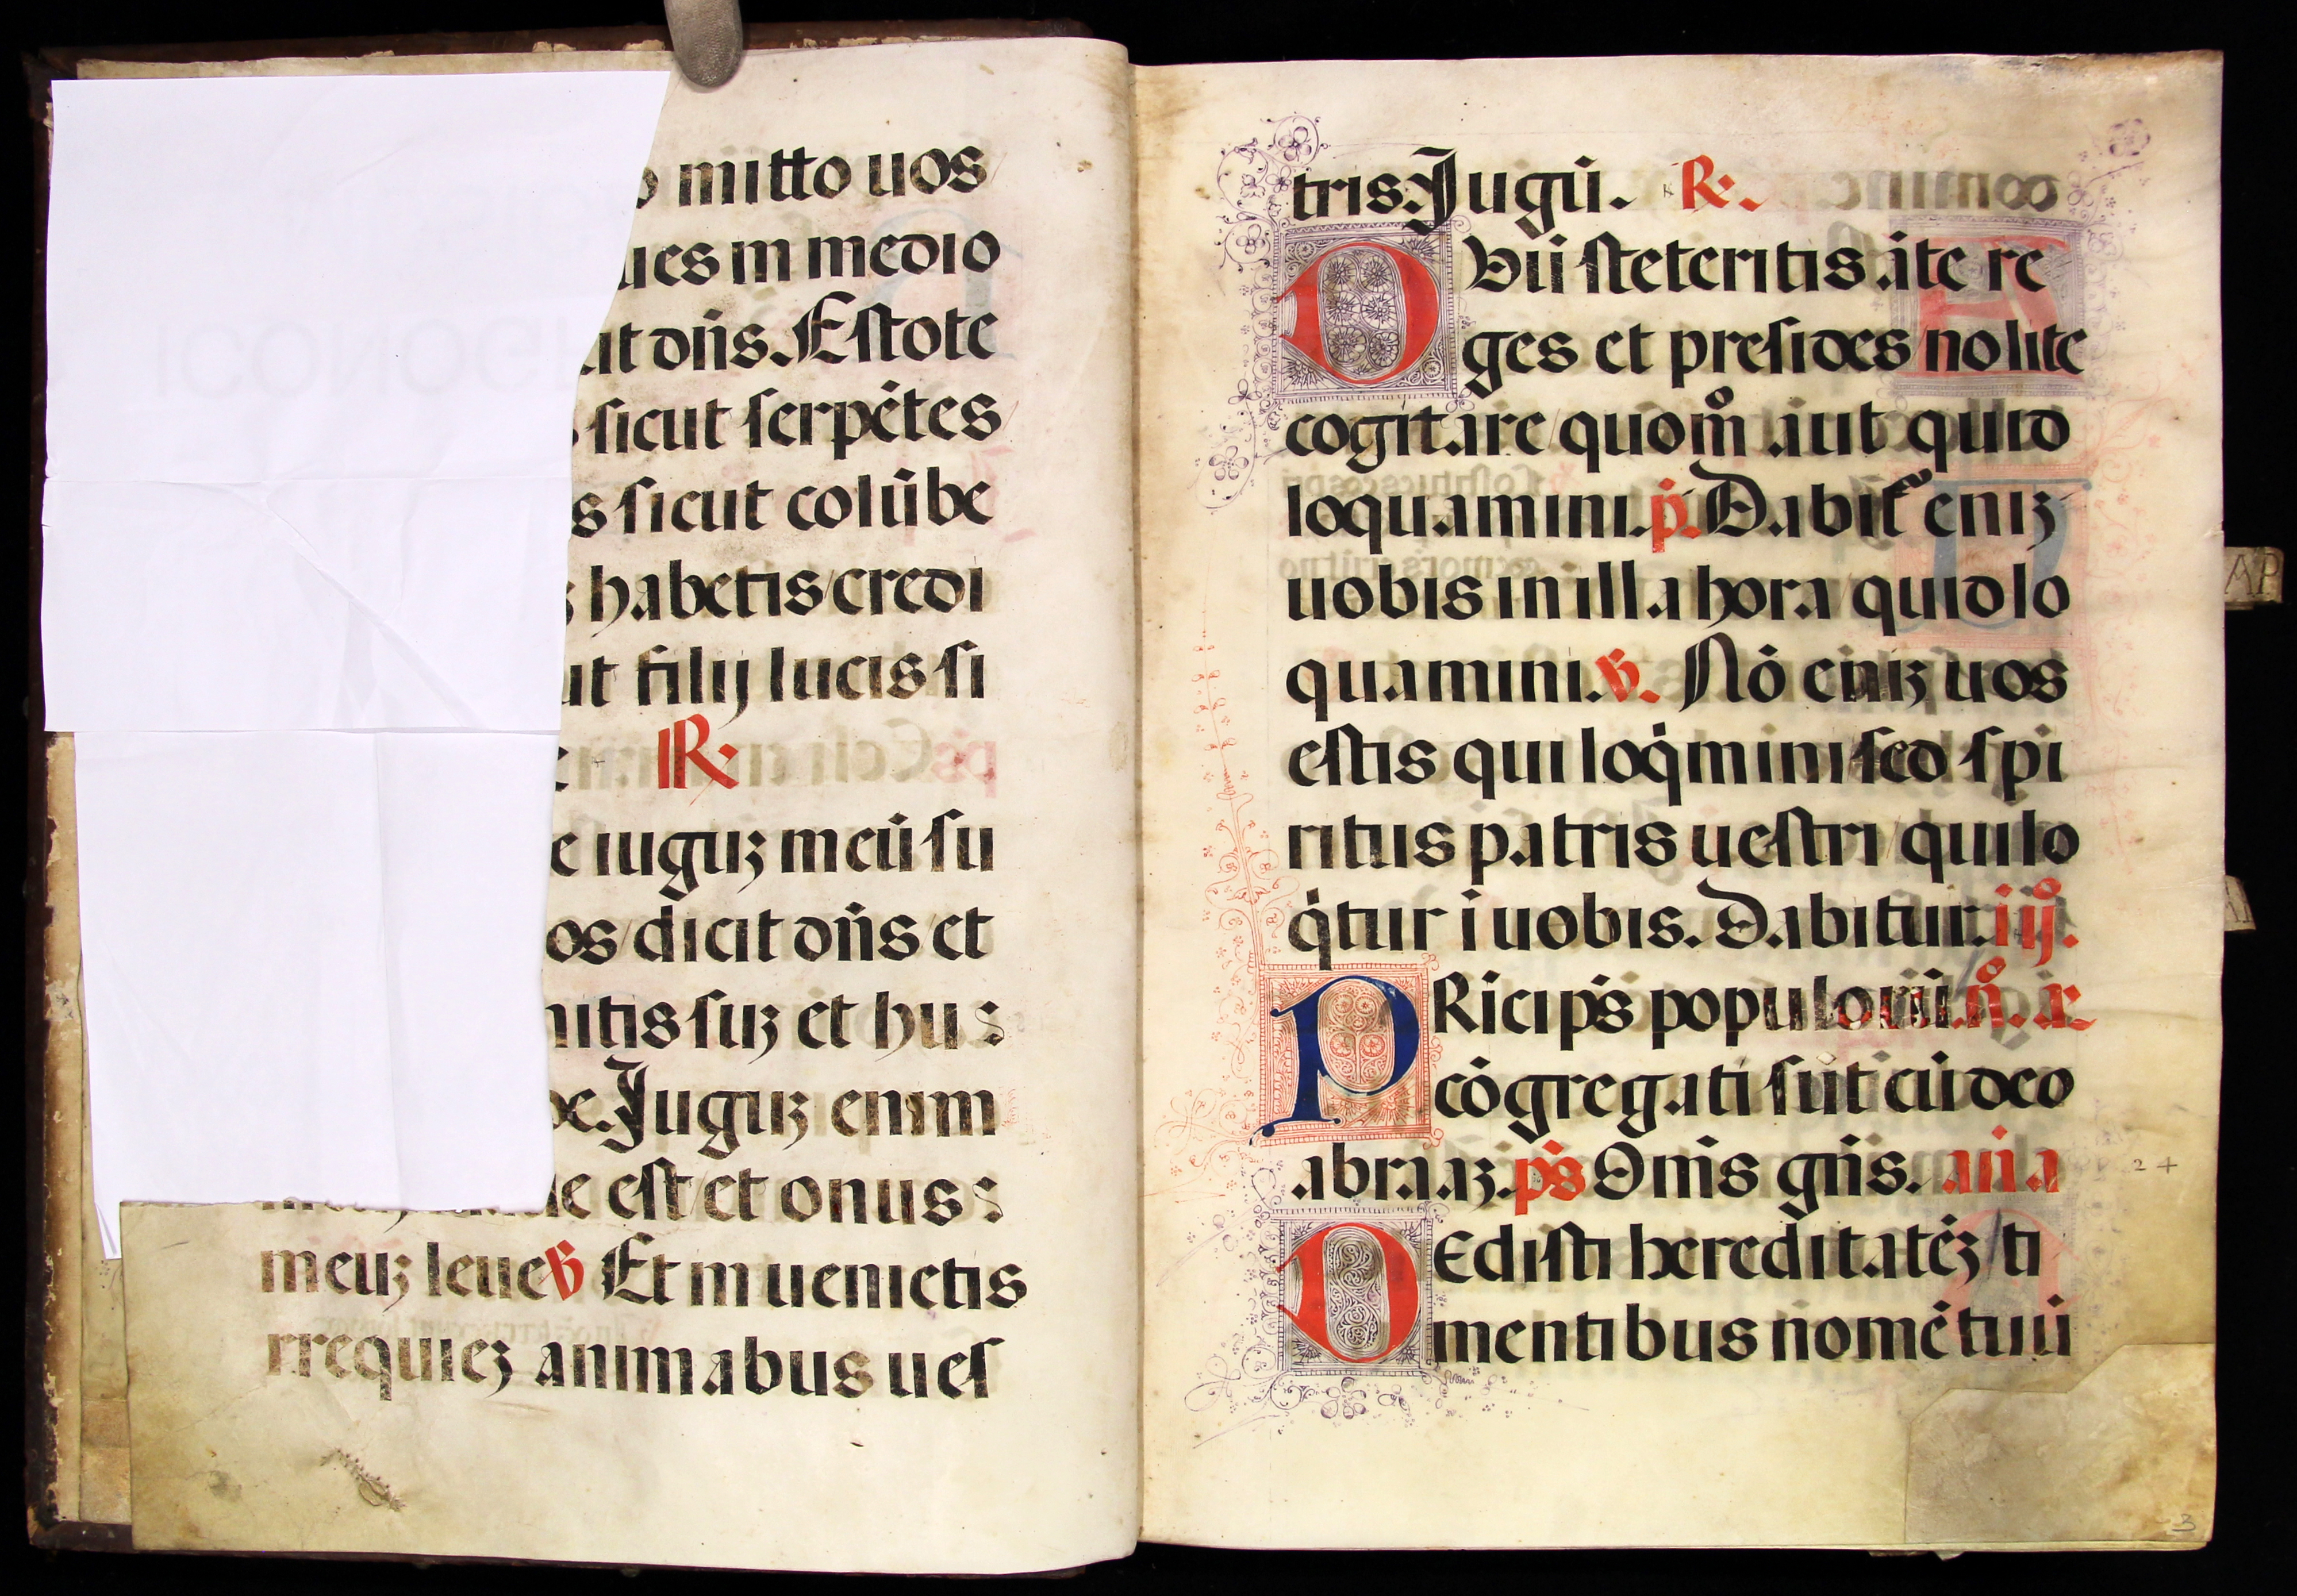 mitto uos
ues in medio
ut dñs. Estote
sicut serpẽtes
s sicut colũbe
s habetis credi
ut filij lucis si
R.
e iuguȝ meũ su
os dicit dñs et
mitis suȝ et hu
de. Juguȝ enim
le est et onus
meuȝ leue ℣ Et inuenietis
rrequieȝ animabus ues
tris. Jugũ. R.
Dũ steteritis ãte re
ges et presides nolite
cogitare quom̊ aut quid
loquamini. p̃. Dabit᷑ eniȝ
uobis in illa hora quid lo
quamini. ℣. Nõ eniȝ uos
estis qui loq̇mini sed spi
ritus patris uestri qui lo
q̇tur ĩ uobis. Dabitur. iij̊.
PRĩcip̃s populorũ. n̊. añ
cõgregati sũt cũ deo
abraaȝ. p̃s Om̃s gñs. añã
DEdisti hereditatẽȝ ti
mentibus nomẽ tuũ
24
3
AP